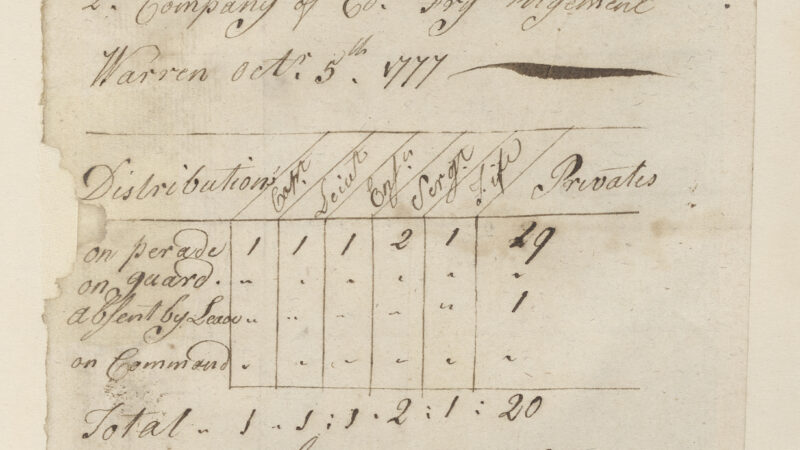 2. Company of Co. Fry Rigement
Warren octr. 5th. 1777
Distribution Capt Leiut Ensn Sergt Fife Privates
on perade 1 1 1 2 1 19
on guard. " " " " " "
absent by Leave " " " " " 1
on Command " " " " " "
Total " 1 " 1 : 1 . 2 : 1 : 20